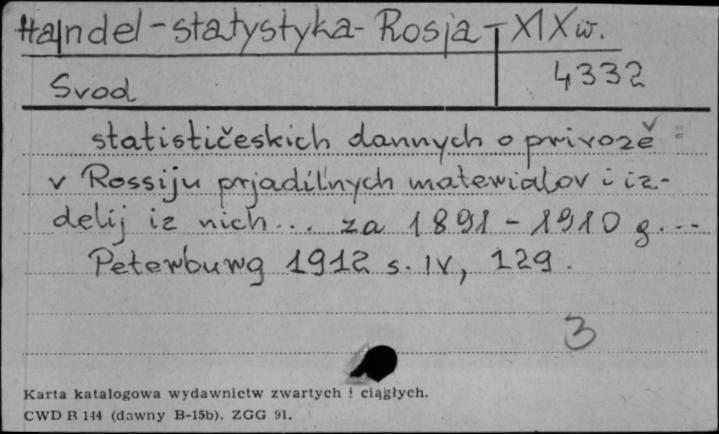 Handel - statystyka - Rosja - XIX w.
Svod
4332
statističeskich dannych o privozě
v Rossiju prjadil'nych materialov i iz-
delij iz nich... za 1891 - 1910 g. ...
Peterburg 1912 s. IV, 129.
3
Karta katalogowa wydawnictw zwartych i ciągłych.
CWD R 144 (dawny B-15b). ZGG 91.